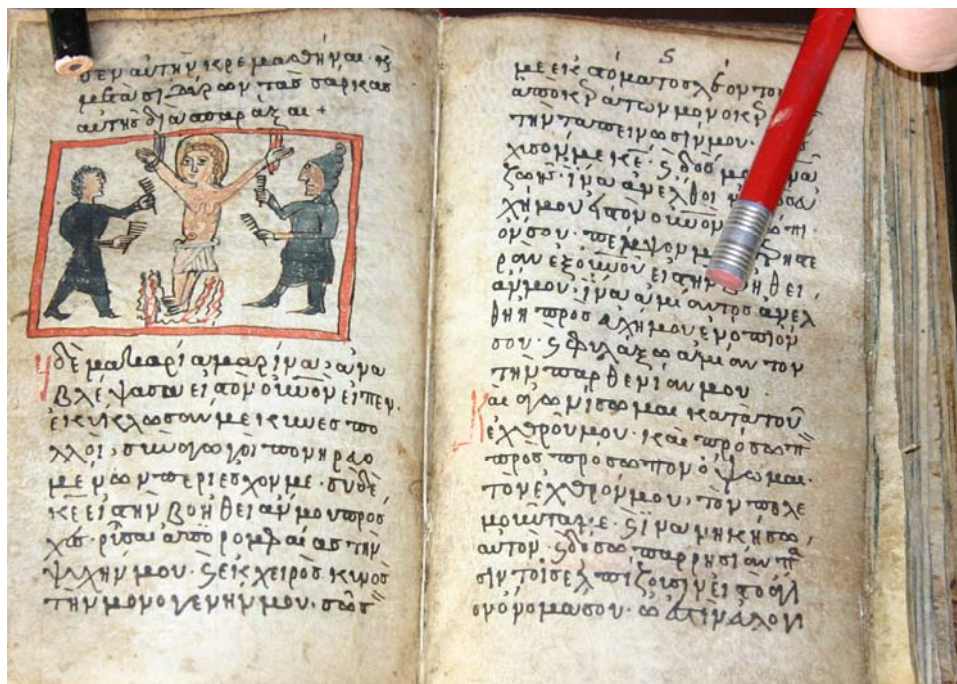 δεν αὐτὴν κρεμασθῆναι· κ
μετὰ σιδάρων τὰς σάρκας
αὐτῆς διασπαράξαι +
Ἡ δὲ μακαρία μαρίνα· ἀνα
βλέψασα εἰς τὸν οὐνὸν εἶπεν·
ἐκίκλωσαν με κινες πο
λλοὶ, συναγωγὴ πονηραο
μένων περιέσχον με· σὺ δὲ
κε εἰς τὴν βοήθειάν μου προσ
χες· ρῦσαι ἀπὸ ρομφαίας τὴν
ψυχήν μου· ϛ ἐκ χειρὸς κινὸς
τὴν μονογενήν μου· σῶσ
ϛ
με ἐκ στόματος λέοντος
ἀπὸ κεράτων μονοκερ
τὴν ταπείνωσίν μου·
χισόν με κε· ϛ δὸς
ζωῆς· ἵνα ἀνέλθοι
χή μου εἰς τὸν οὐνὸν
όν σου· πέμψον μοι
ραν ἐξ οὐνοῦ εἰς τὴν βοήθει
άν μου· ἵνα ἀμίαντος ἀνελ
θη προσευχή μου ἐνόπιόν
σου· ϛ φυλάξω ἀμίαντον
τὴν παρθενίαν μου·
Καὶ ἀγωνίσωμαι κατὰ τοῦ
ἐχθροῦ μου· καὶ πρόσωπ
πρὸς πρόσωπον ὄψωμαι
τὸν ἐχθρόν μου, τὸν πολε
μοῦντά με· ϛ ἵνα νηκήσω
αὐτὸν· ϛ δόσω παρρησίαν πᾶ
σιν τοῖς ἐλπίζουσιν εἰς τὸ ἅγι
ον ὄνομά σου·